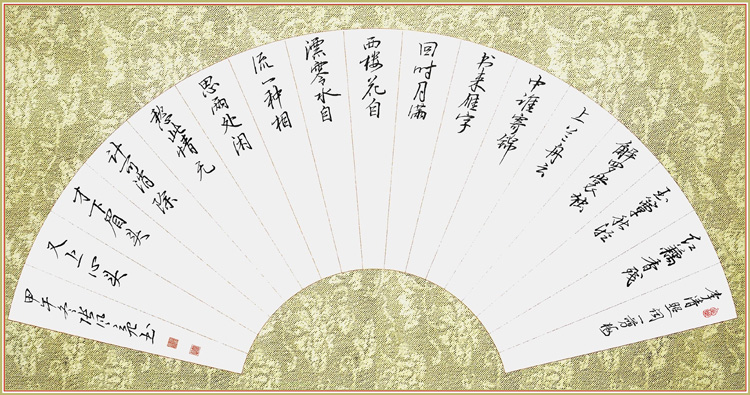 李清照词一剪梅
红藕香残
玉簟秋轻
解罗裳独
上兰舟云
中谁寄锦
书来雁字
回时月满
西楼花自
漂零水自
流一种相
思两处闲
愁此情无
计可消除
才下眉头
又上心头
甲午冬